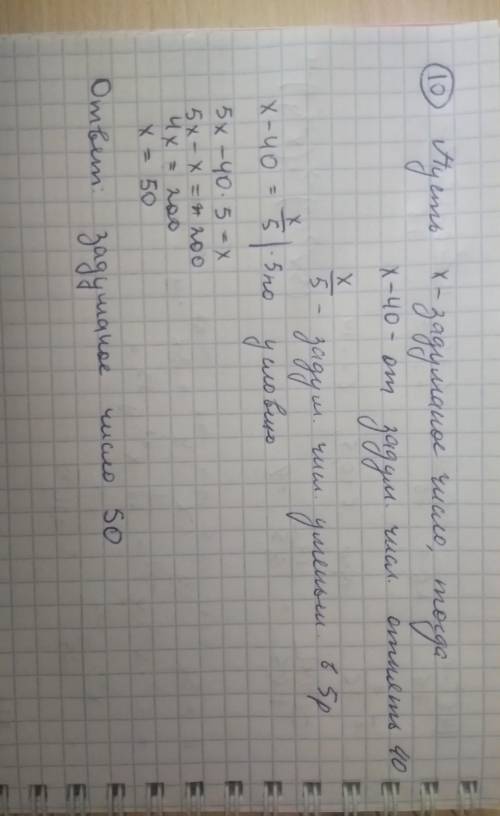 ⑩ Пусть x - задуманое число, тогда
x - 40 - от задум. числ. отнять 40
x/5 - задум. числ уменьш. в 5р
x - 40 = x/5 | · 5 по условию
5x - 40 · 5 = x
5x - x = 200
4x = 200
x = 50
Ответ: задуманое число 50